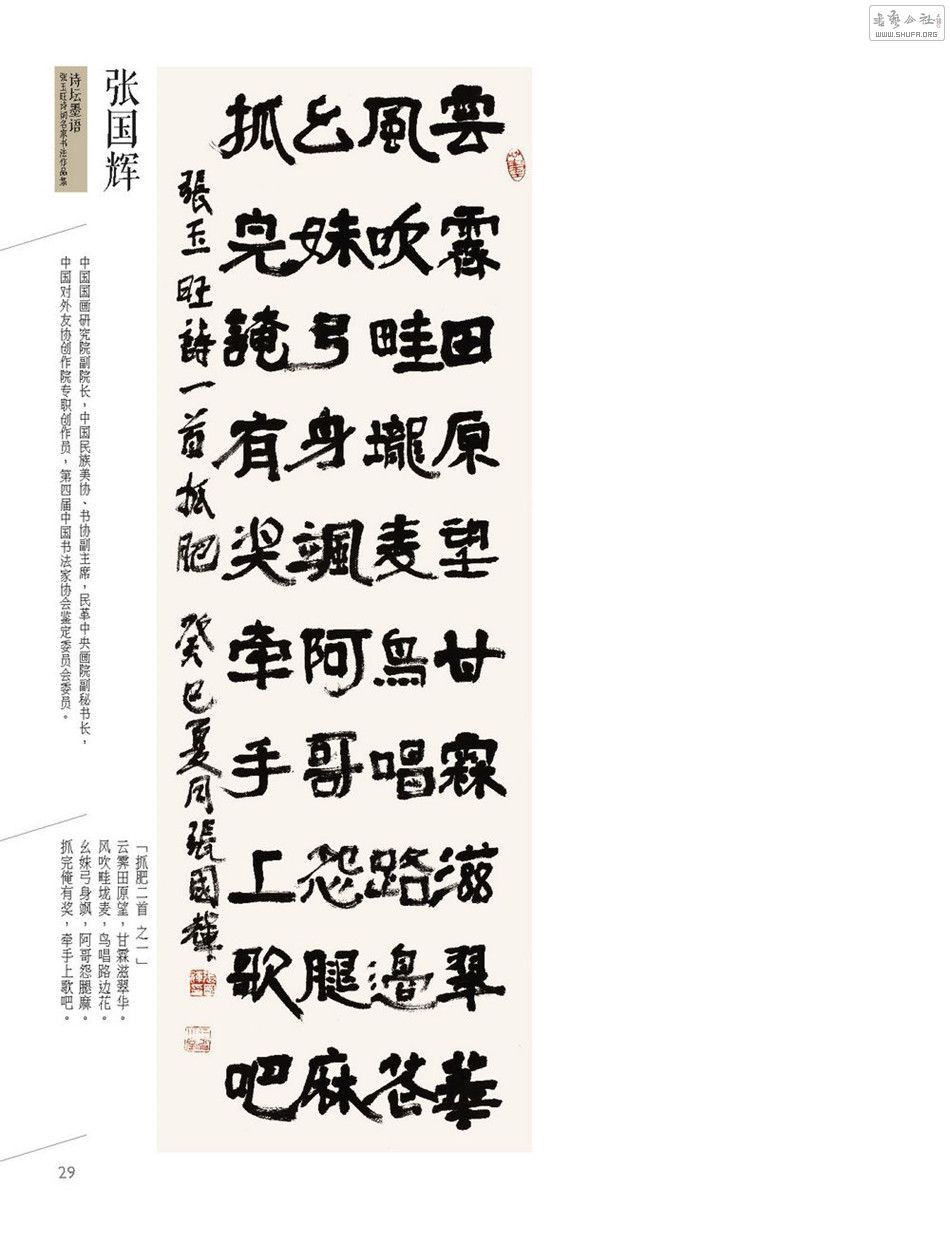 书艺公社
WWW.SHUFA.ORG
雲霽田原望甘霖滋翠華
風吹畦壠麦鸟唱路邊花
幺妹弓身飒阿哥怨腿麻
抓完誰有奖牵手上歌吧
張玉旺詩一首抓肥 癸巳夏月張國輝
张国辉
诗坛墨语
张玉旺诗词名家书法作品集
中国国画研究院副院长，中国民族美协、书协副主席，民革中央画院副秘书长，
中国对外友协创作院专职创作员，第四届中国书法家协会鉴定委员会委员。
「抓肥二首 之一」
云霁田原望，甘霖滋翠华。
风吹畦垅麦，鸟唱路边花。
幺妹弓身飒，阿哥怨腿麻。
抓完俺有奖，牵手上歌吧。
29